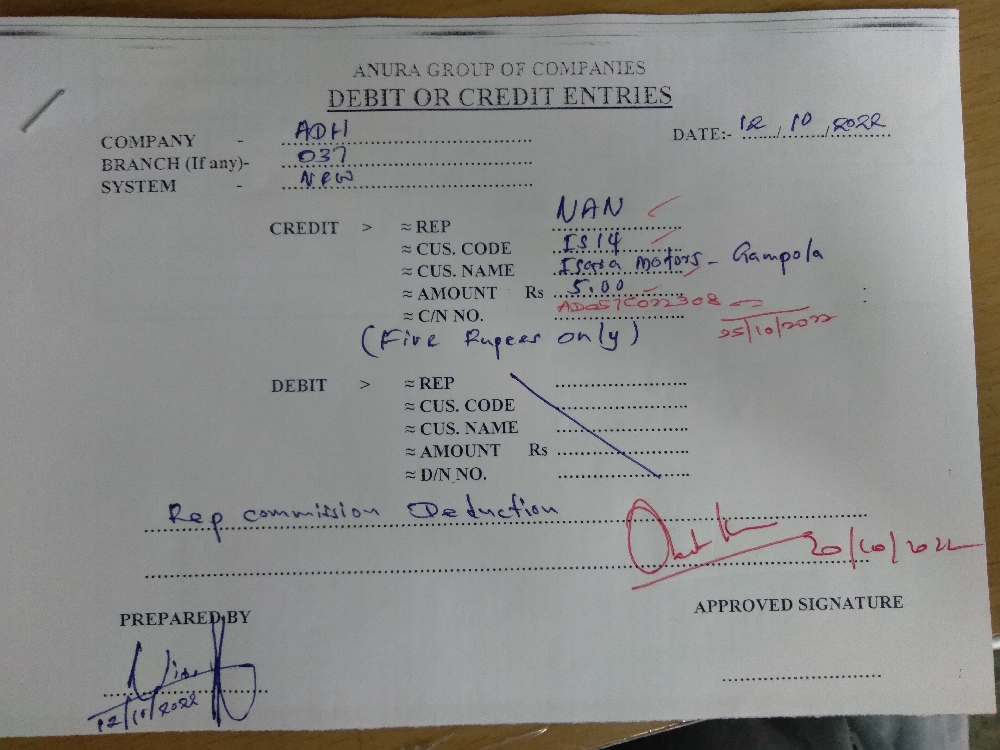 ANURA GROUP OF COMPANIES
DEBIT OR CREDIT ENTRIES
COMPANY - ADH
DATE:- 12/10/2022
BRANCH (If any)- 037
SYSTEM - NPW
CREDIT > ≈ REP NAN
≈ CUS. CODE IS14
≈ CUS. NAME Isara Motors - Gampola
≈ AMOUNT Rs 5.00
≈ C/N NO. AD057C022308
25/10/2022
(Five Rupees only)
DEBIT > ≈ REP
≈ CUS. CODE
≈ CUS. NAME
≈ AMOUNT Rs
≈ D/N NO.
Rep commission Deduction
20/10/2022
PREPARED BY
APPROVED SIGNATURE
12/10/2022